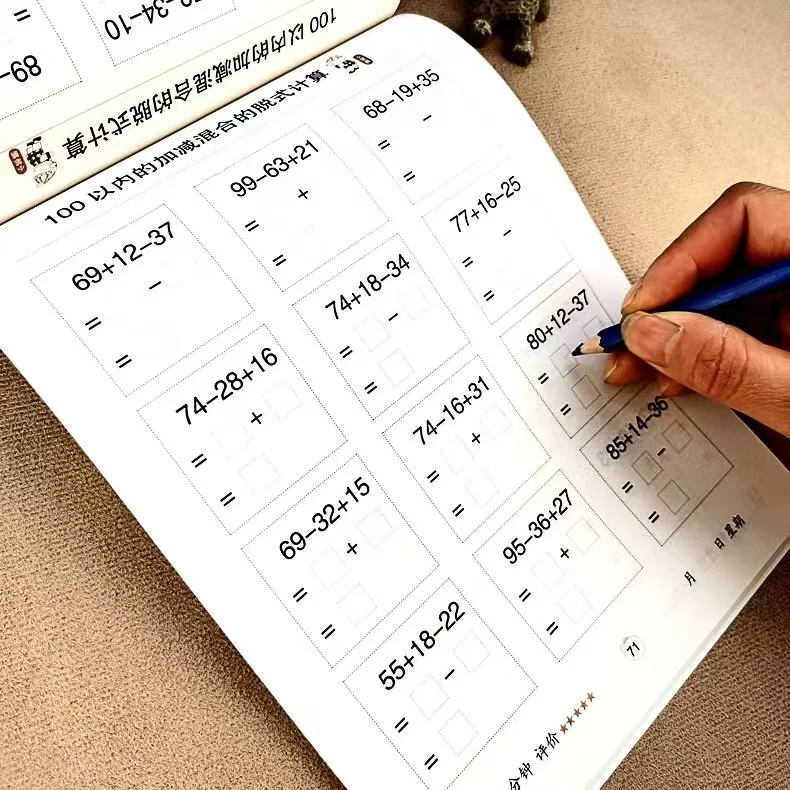 -34-10
89-
=
100 以内的加减混合的脱式计算
100 以内的加减混合的脱式计算
69+12-37
= -
=
99-63+21
= +
=
68-19+35
= -
=
74-28+16
= +
=
74+18-34
= -
=
77+16-25
= -
=
69-32+15
= +
=
74-16+31
= +
=
80+12-37
=
=
55+18-22
= -
=
95-36+27
= +
=
85+14-36
= -
=
分钟 评价 ★★★★★
71
月 日 星期